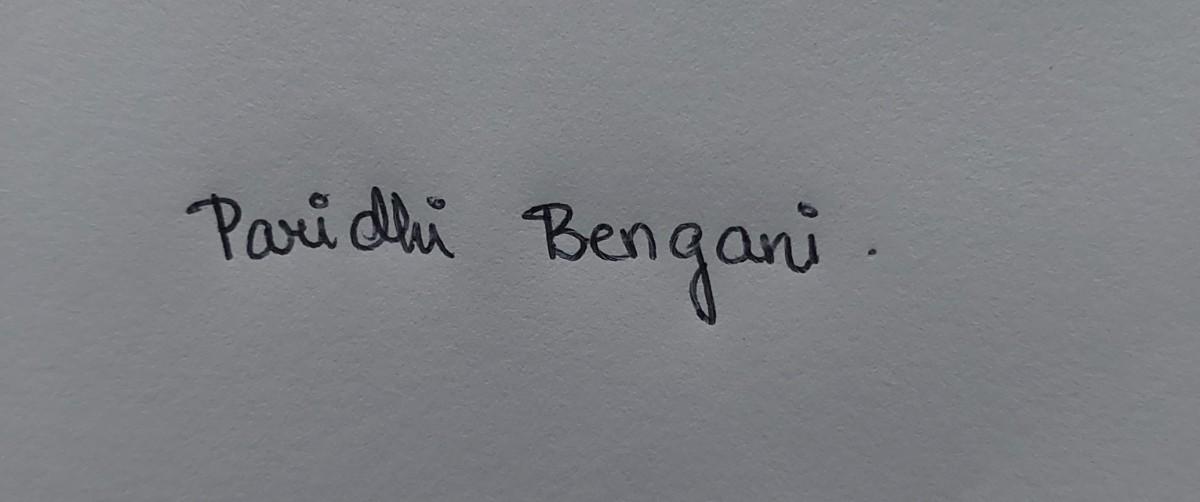 Paridhi Bengani.